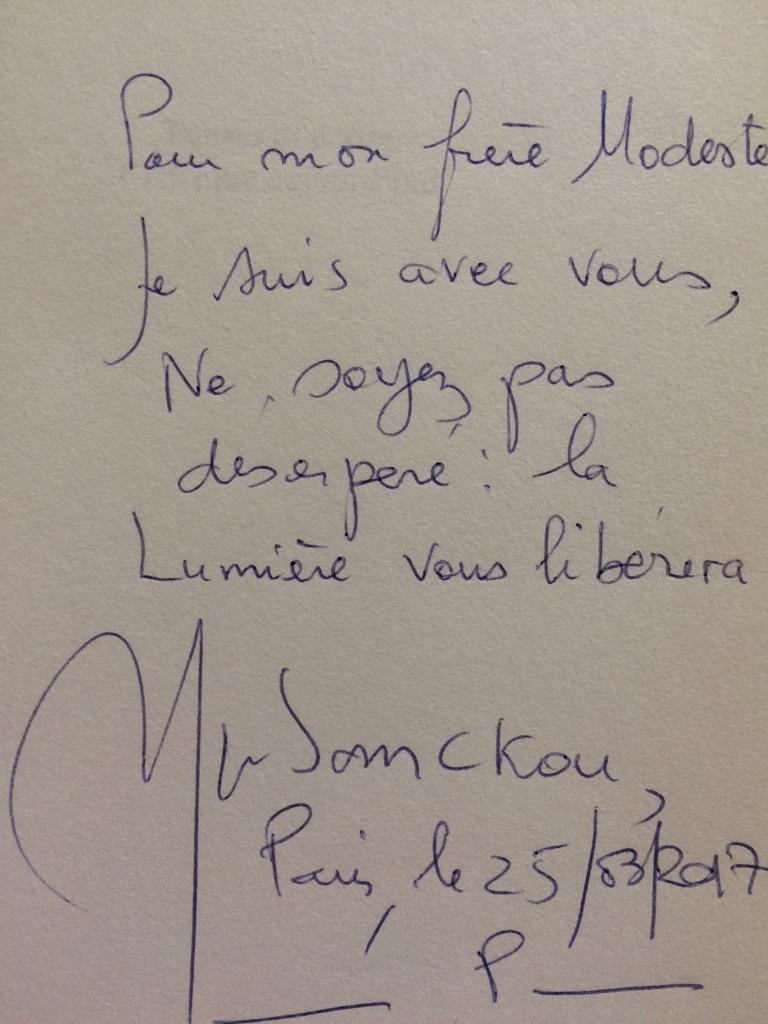 Pour mon frère Modeste
Je suis avec vous,
Ne soyez pas
désespéré : la
Lumière vous libérera
Paris, le 25/03/2017
P